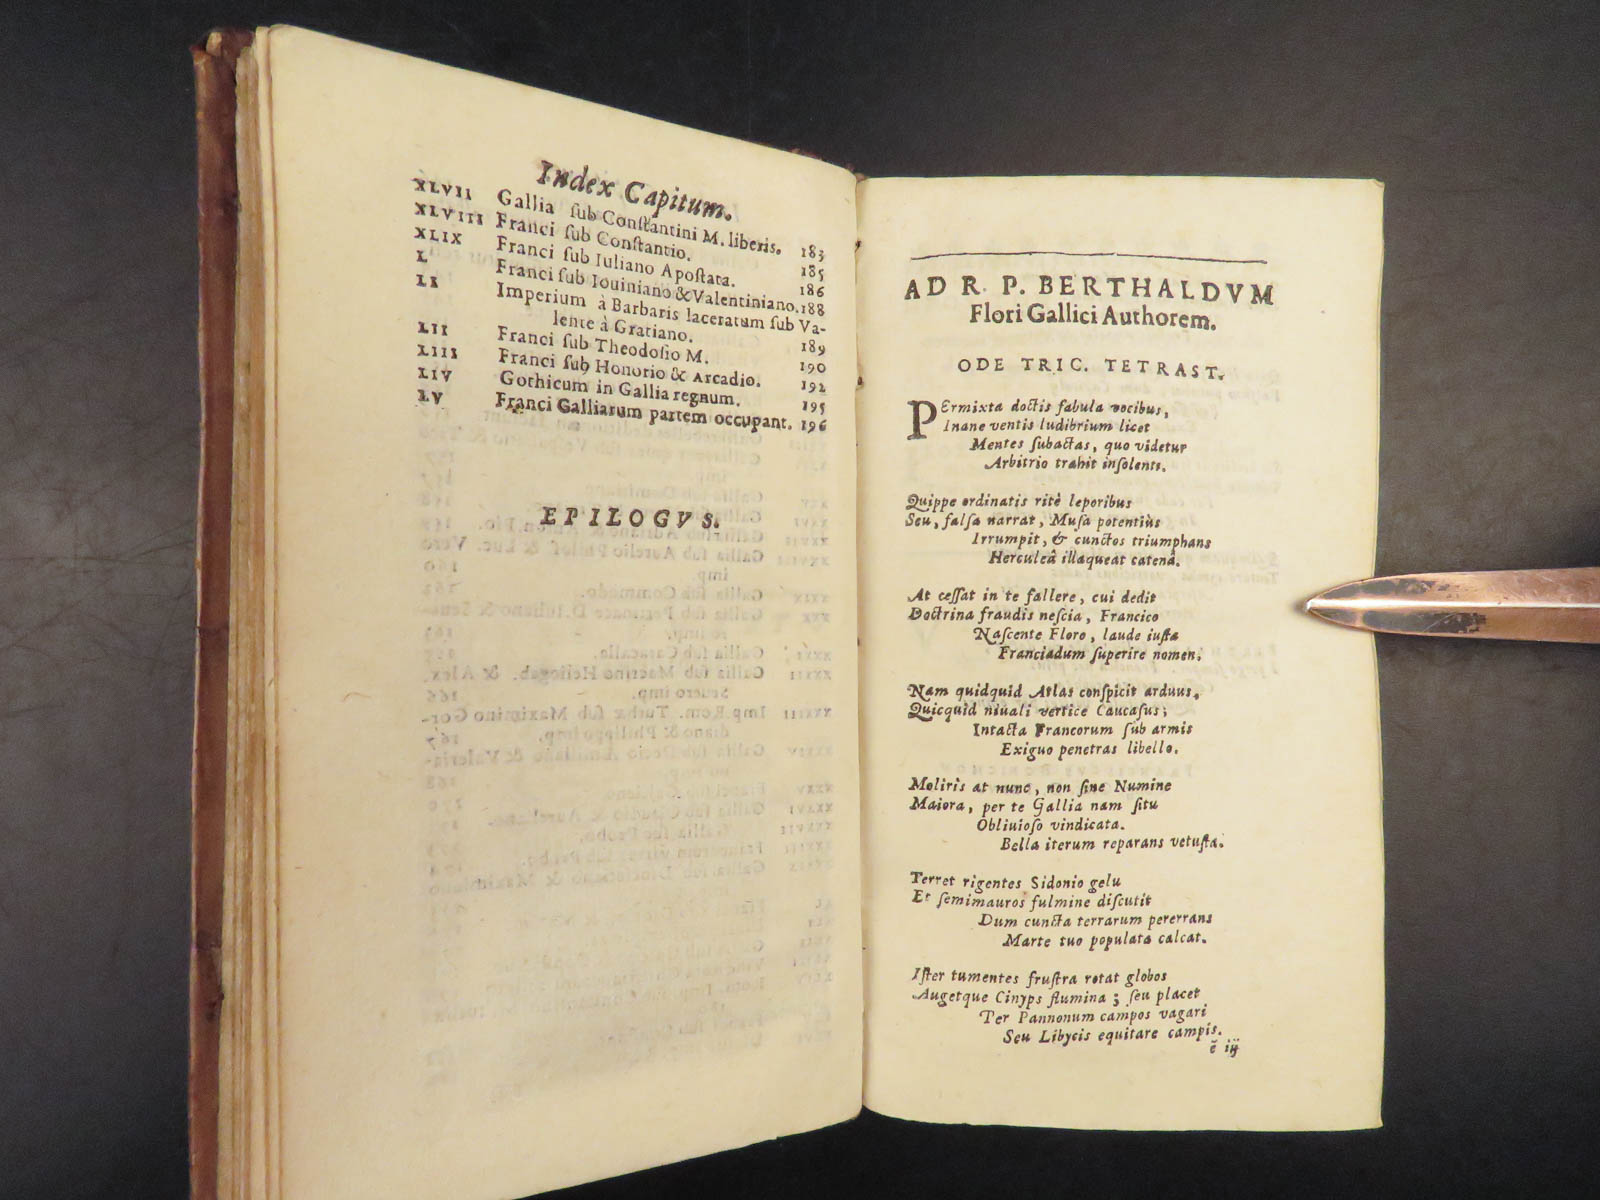 Index Capitum.
XLVII Gallia ſub Conſtantini M. liberis. 183
XLVIII Franci ſub Conſtantio. 185
XLIX Franci ſub Iuliano Apoſtata. 186
L Franci ſub Iouiniano & Valentiniano. 188
LI Imperium à Barbaris laceratum ſub Va-
lente à Gratiano. 189
LII Franci ſub Theodoſio M. 190
LIII Franci ſub Honorio & Arcadio. 192
LIV Gothicum in Gallia regnum. 195
LV Franci Galliarum partem occupant. 196
EPILOGVS.
AD R. P. BERTHALDVM
Flori Gallici Authorem.
ODE TRIC. TETRAST.
PErmixta doctis fabula vocibus,
Inane ventis ludibrium licet
Mentes ſubactas, quo videtur
Arbitrio trahit inſolenti.
Quippe ordinatis ritè leporibus
Seu, falſa narrat, Muſa potentiùs
Irrumpit, & cunctos triumphans
Herculeâ illaqueat catenâ.
At ceſſat in te fallere, cui dedit
Doctrina fraudis neſcia, Francico
Naſcente Floro, laude iuſta
Franciadum ſuperire nomen.
Nam quidquid Atlas conſpicit arduus,
Quicquid niuali vertice Caucaſus;
Intacta Francorum ſub armis
Exiguo penetras libello.
Moliris at nunc, non ſine Numine
Maiora, per te Gallia nam ſitu
Obliuioſo vindicata.
Bella iterum reparans vetuſta.
Terret rigentes Sidonio gelu
Et ſemimauros fulmine diſcutit
Dum cuncta terrarum pererrans
Marte tuo populata calcat.
Iſter tumentes fruſtra rotat globos
Augetque Cinyps flumina; ſeu placet
Ter Pannonum campos vagari
Seu Libycis equitare campis.
ẽ iij